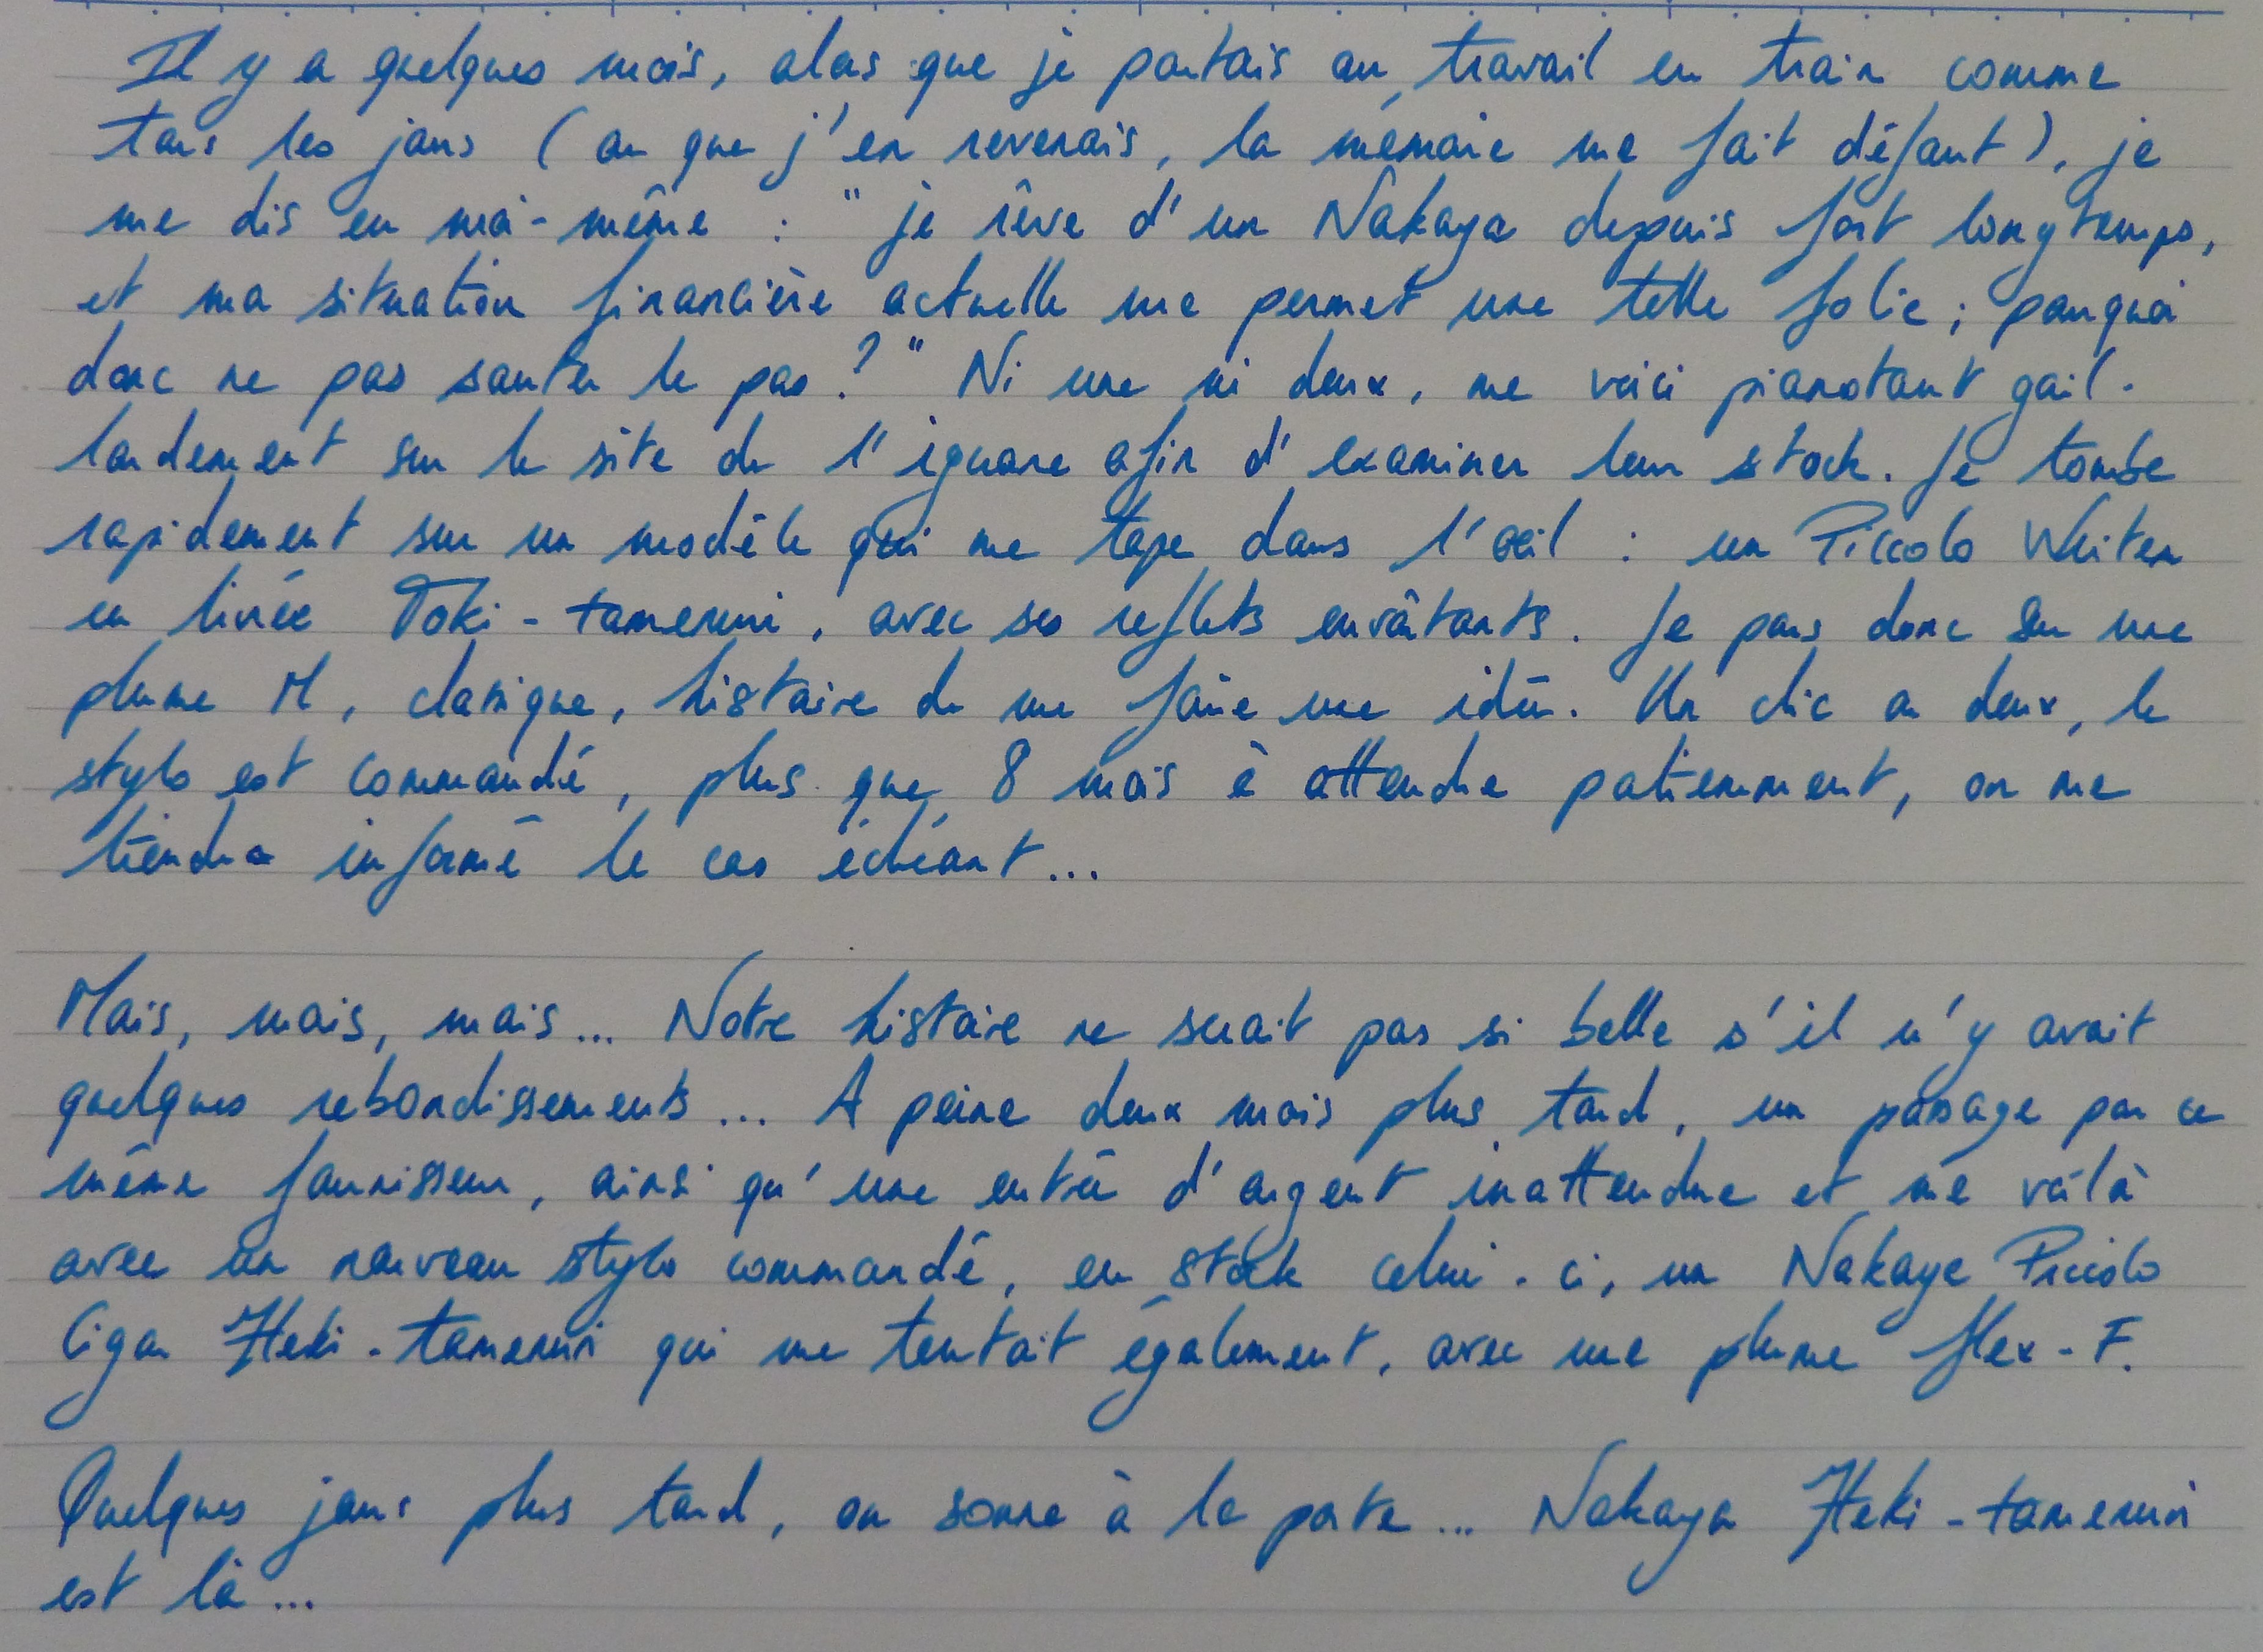 Il y a quelques mois, alors que je partais au travail en train comme
tous les jours (ou que j'en revenais, la mémoire me fait défaut), je
me dis en moi-même : "je rêve d'un Nakaya depuis fort longtemps,
et ma situation financière actuelle me permet une telle folie ; pourquoi
donc ne pas sauter le pas ?" Ni une ni deux, me voici pianotant gail-
lardement sur le site de l'iguane afin d'examiner leur stock. Je tombe
rapidement sur un modèle qui me tape dans l'œil : un Piccolo Writer
en livrée Toki-tamenuri, avec ses reflets envoûtants. Je pars donc sur une
plume M, classique, histoire de me faire une idée. Un clic ou deux, le
stylo est commandé, plus que 8 mois à attendre patiemment, on me
tiendra informé le cas échéant...
Mais, mais, mais... Notre histoire ne serait pas si belle s'il n'y avait
quelques rebondissements... A peine deux mois plus tard, un passage par ce
même fournisseur, ainsi qu'une entrée d'argent inattendue et me voilà
avec un nouveau stylo commandé, en stock celui-ci, un Nakaya Piccolo
Cigar Heki-tamenuri qui me tentait également, avec une plume flex-F.
Quelques jours plus tard, on sonne à la porte... Nakaya Heki-tamenuri
est là...